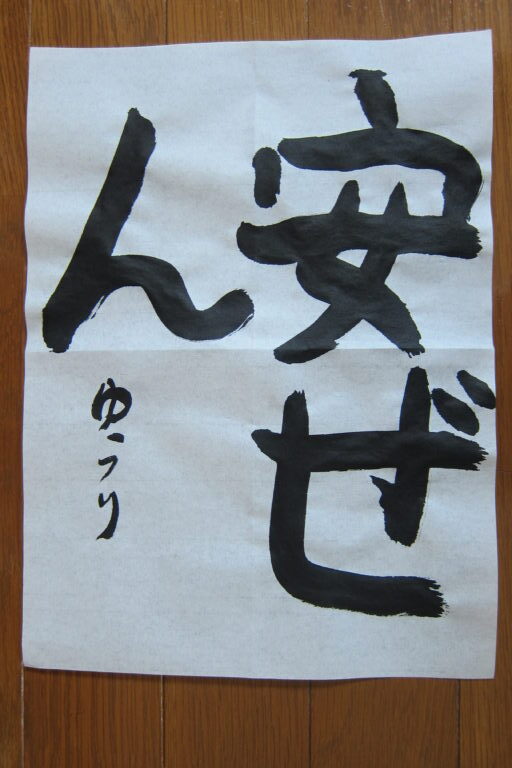 安ぜ
ん
ゆうり